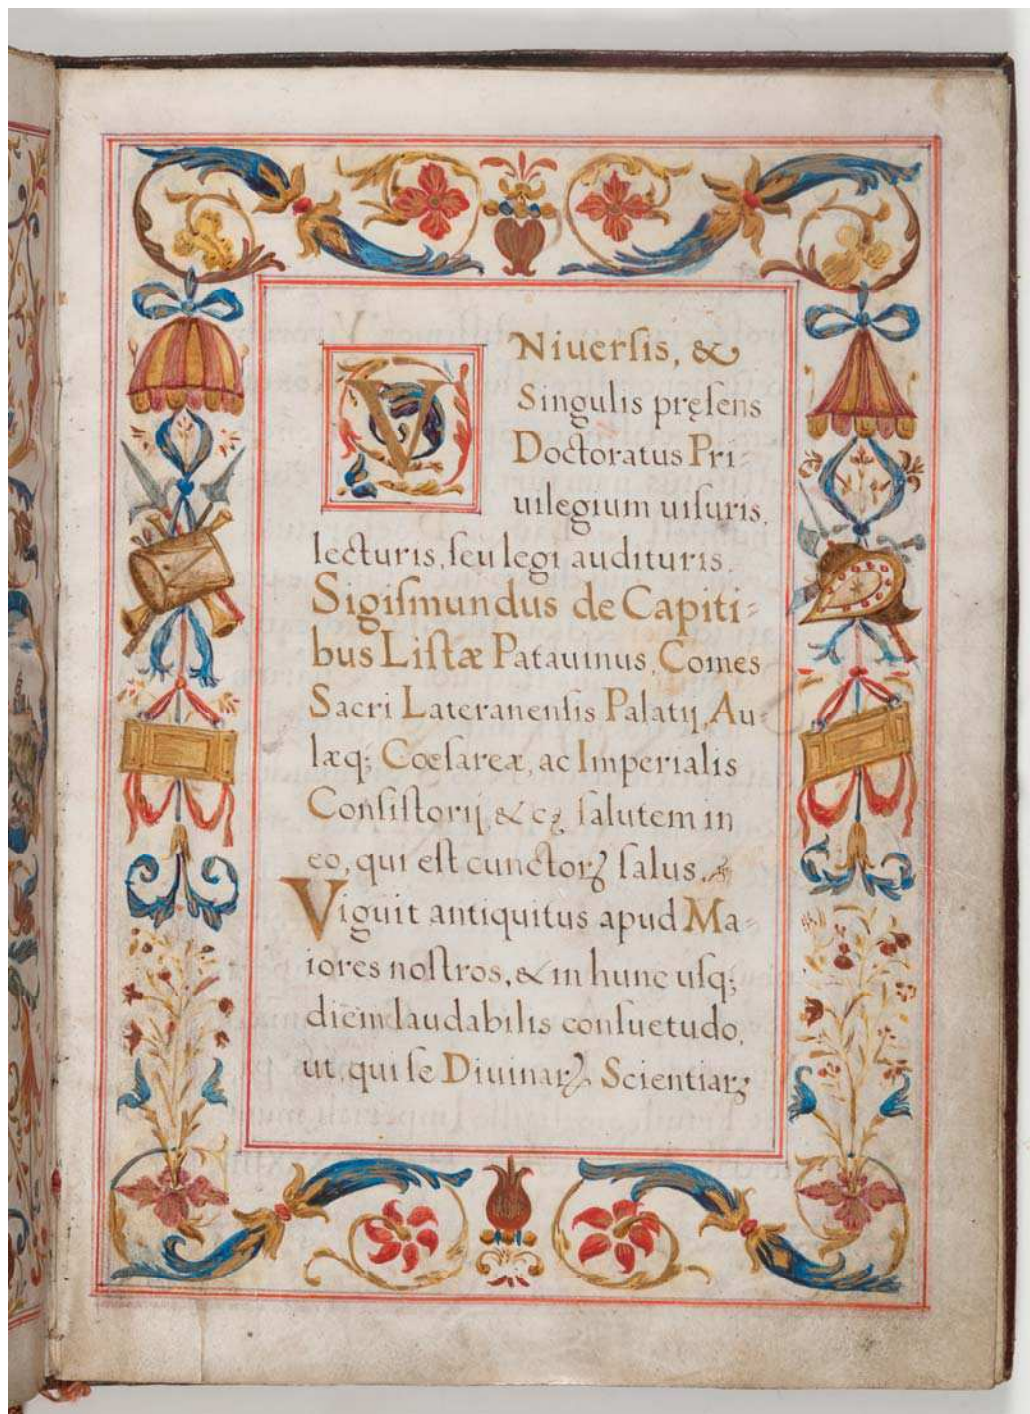 VNiuerſis, &
Singulis pręſens
Doctoratus Pri=
uilegium uiſuris,
lecturis, ſeu legi audituris.
Sigiſmundus de Capiti=
bus Liſtæ Patauinus, Comes
Sacri Lateranenſis Palatij, Au=
læq; Cœſareæ, ac Imperialis
Conſiſtorij, & cꝫ ſalutem in
eo, qui eſt cunctorꝝ ſalus.
Viguit antiquitus apud Ma=
iores noſtros, & in hunc uſq;
diem laudabilis conſuetudo,
ut, qui ſe Diuinarꝝ Scientiarꝝ